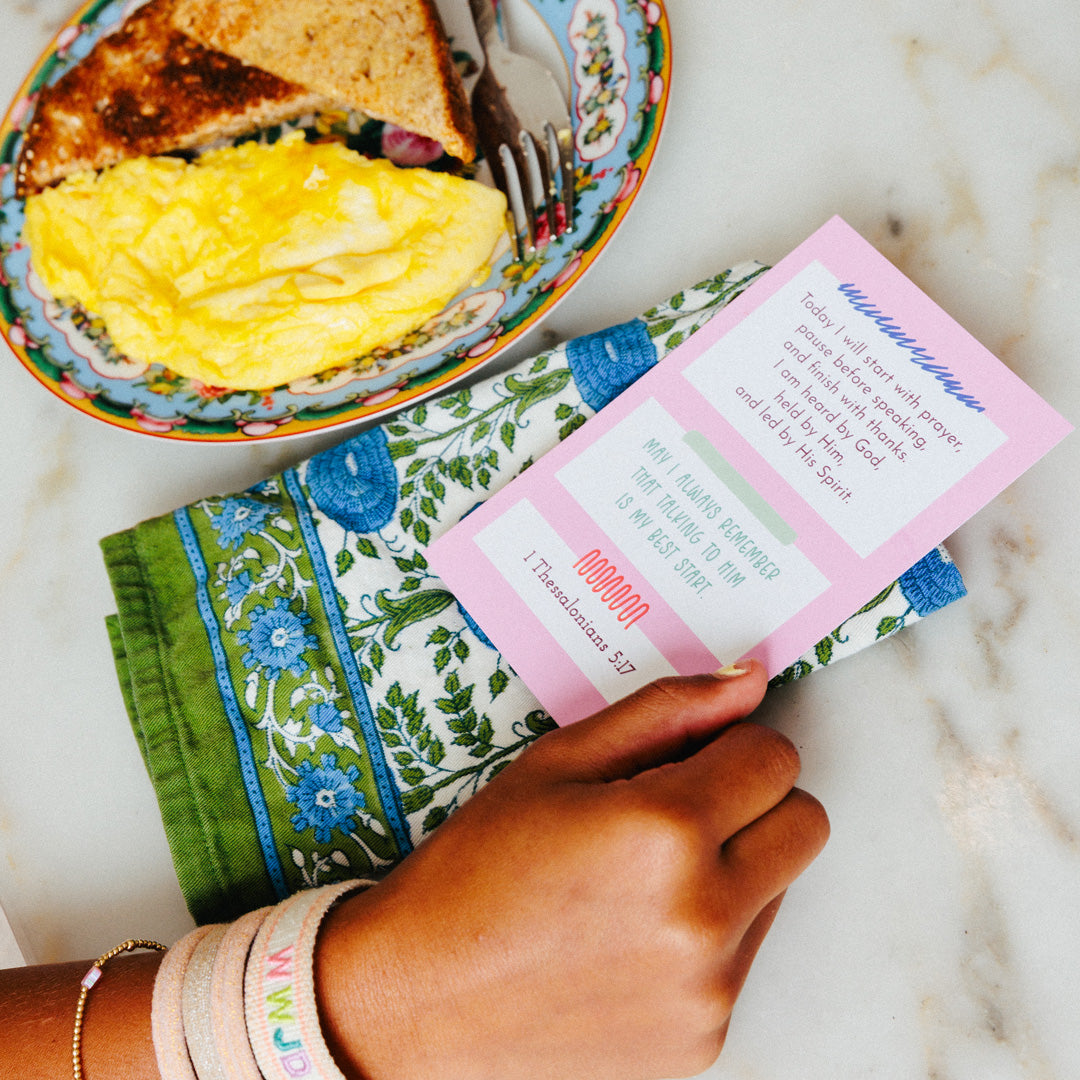 Today I will start with prayer,
pause before speaking,
and finish with thanks.
I am heard by God,
held by Him,
and led by His Spirit.
MAY I ALWAYS REMEMBER
THAT TALKING TO HIM
IS MY BEST START.
1 Thessalonians 5:17
WWJD